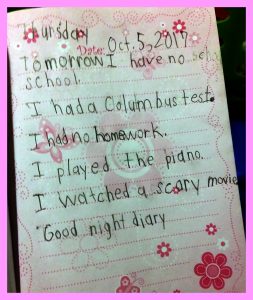 Thursday
Date: Oct. 5, 2017
Tomorrow I have no scho
school.
I had a Columbus test.
I had no homework.
I played the piano.
I watched a scary movie
Good night diary